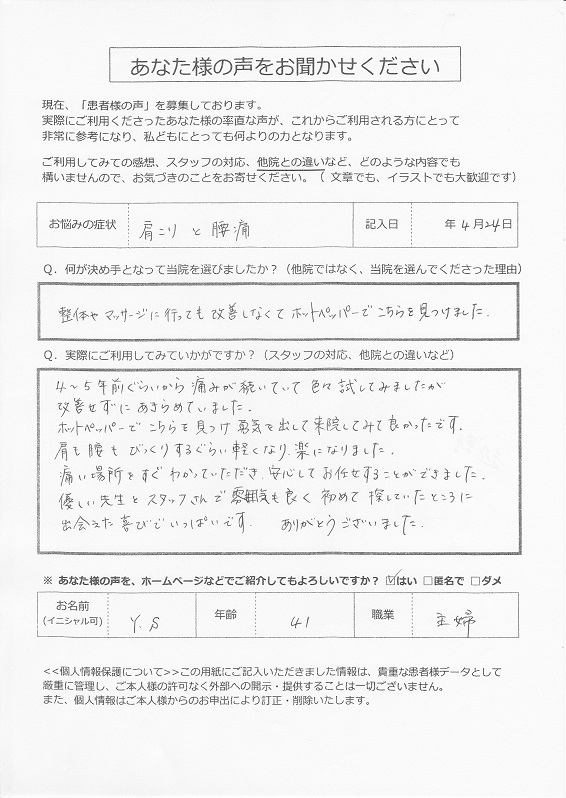 あなた様の声をお聞かせください
現在、「患者様の声」を募集しております。
実際にご利用くださったあなた様の率直な声が、これからご利用される方にとって
非常に参考になり、私どもにとっても何よりの力となります。
ご利用してみての感想、スタッフの対応、他院との違いなど、どのような内容でも
構いませんので、お気づきのことをお寄せください。（ 文章でも、イラストでも大歓迎です）
お悩みの症状 肩こり と 腰痛 記入日 年 4月24日
Q．何が決め手となって当院を選びましたか？（他院ではなく、当院を選んでくださった理由）
整体や マッサージに行っても 改善しなくて ホットペッパーで こちらを見つけました.
Q．実際にご利用してみていかがですか？（スタッフの対応、他院との違いなど）
4～5年前ぐらいから 痛みが 続いていて 色々 試してみましたが
改善せずに あきらめていました.
ホットペッパーで こちらを 見つけ 勇気を 出して 来院してみて 良かったです.
肩も 腰も びっくりするぐらい 軽くなり. 楽になりました.
痛い 場所を すぐ わかっていただき. 安心して お任せすることができました.
優しい 先生と スタッフさんで 雰囲気も 良く 初めて 探していたところに
出会えた 喜びで いっぱいです. ありがとうございました.
※ あなた様の声を、ホームページなどでご紹介してもよろしいですか？ ☑はい □匿名で □ダメ
お名前 Y.S 年齢 41 職業 主婦
(イニシャル可)
<<個人情報保護について>>この用紙にご記入いただきました情報は、貴重な患者様データとして
厳重に管理し、ご本人様の許可なく外部への開示・提供することは一切ございません。
また、個人情報はご本人様からのお申出により訂正・削除いたします。